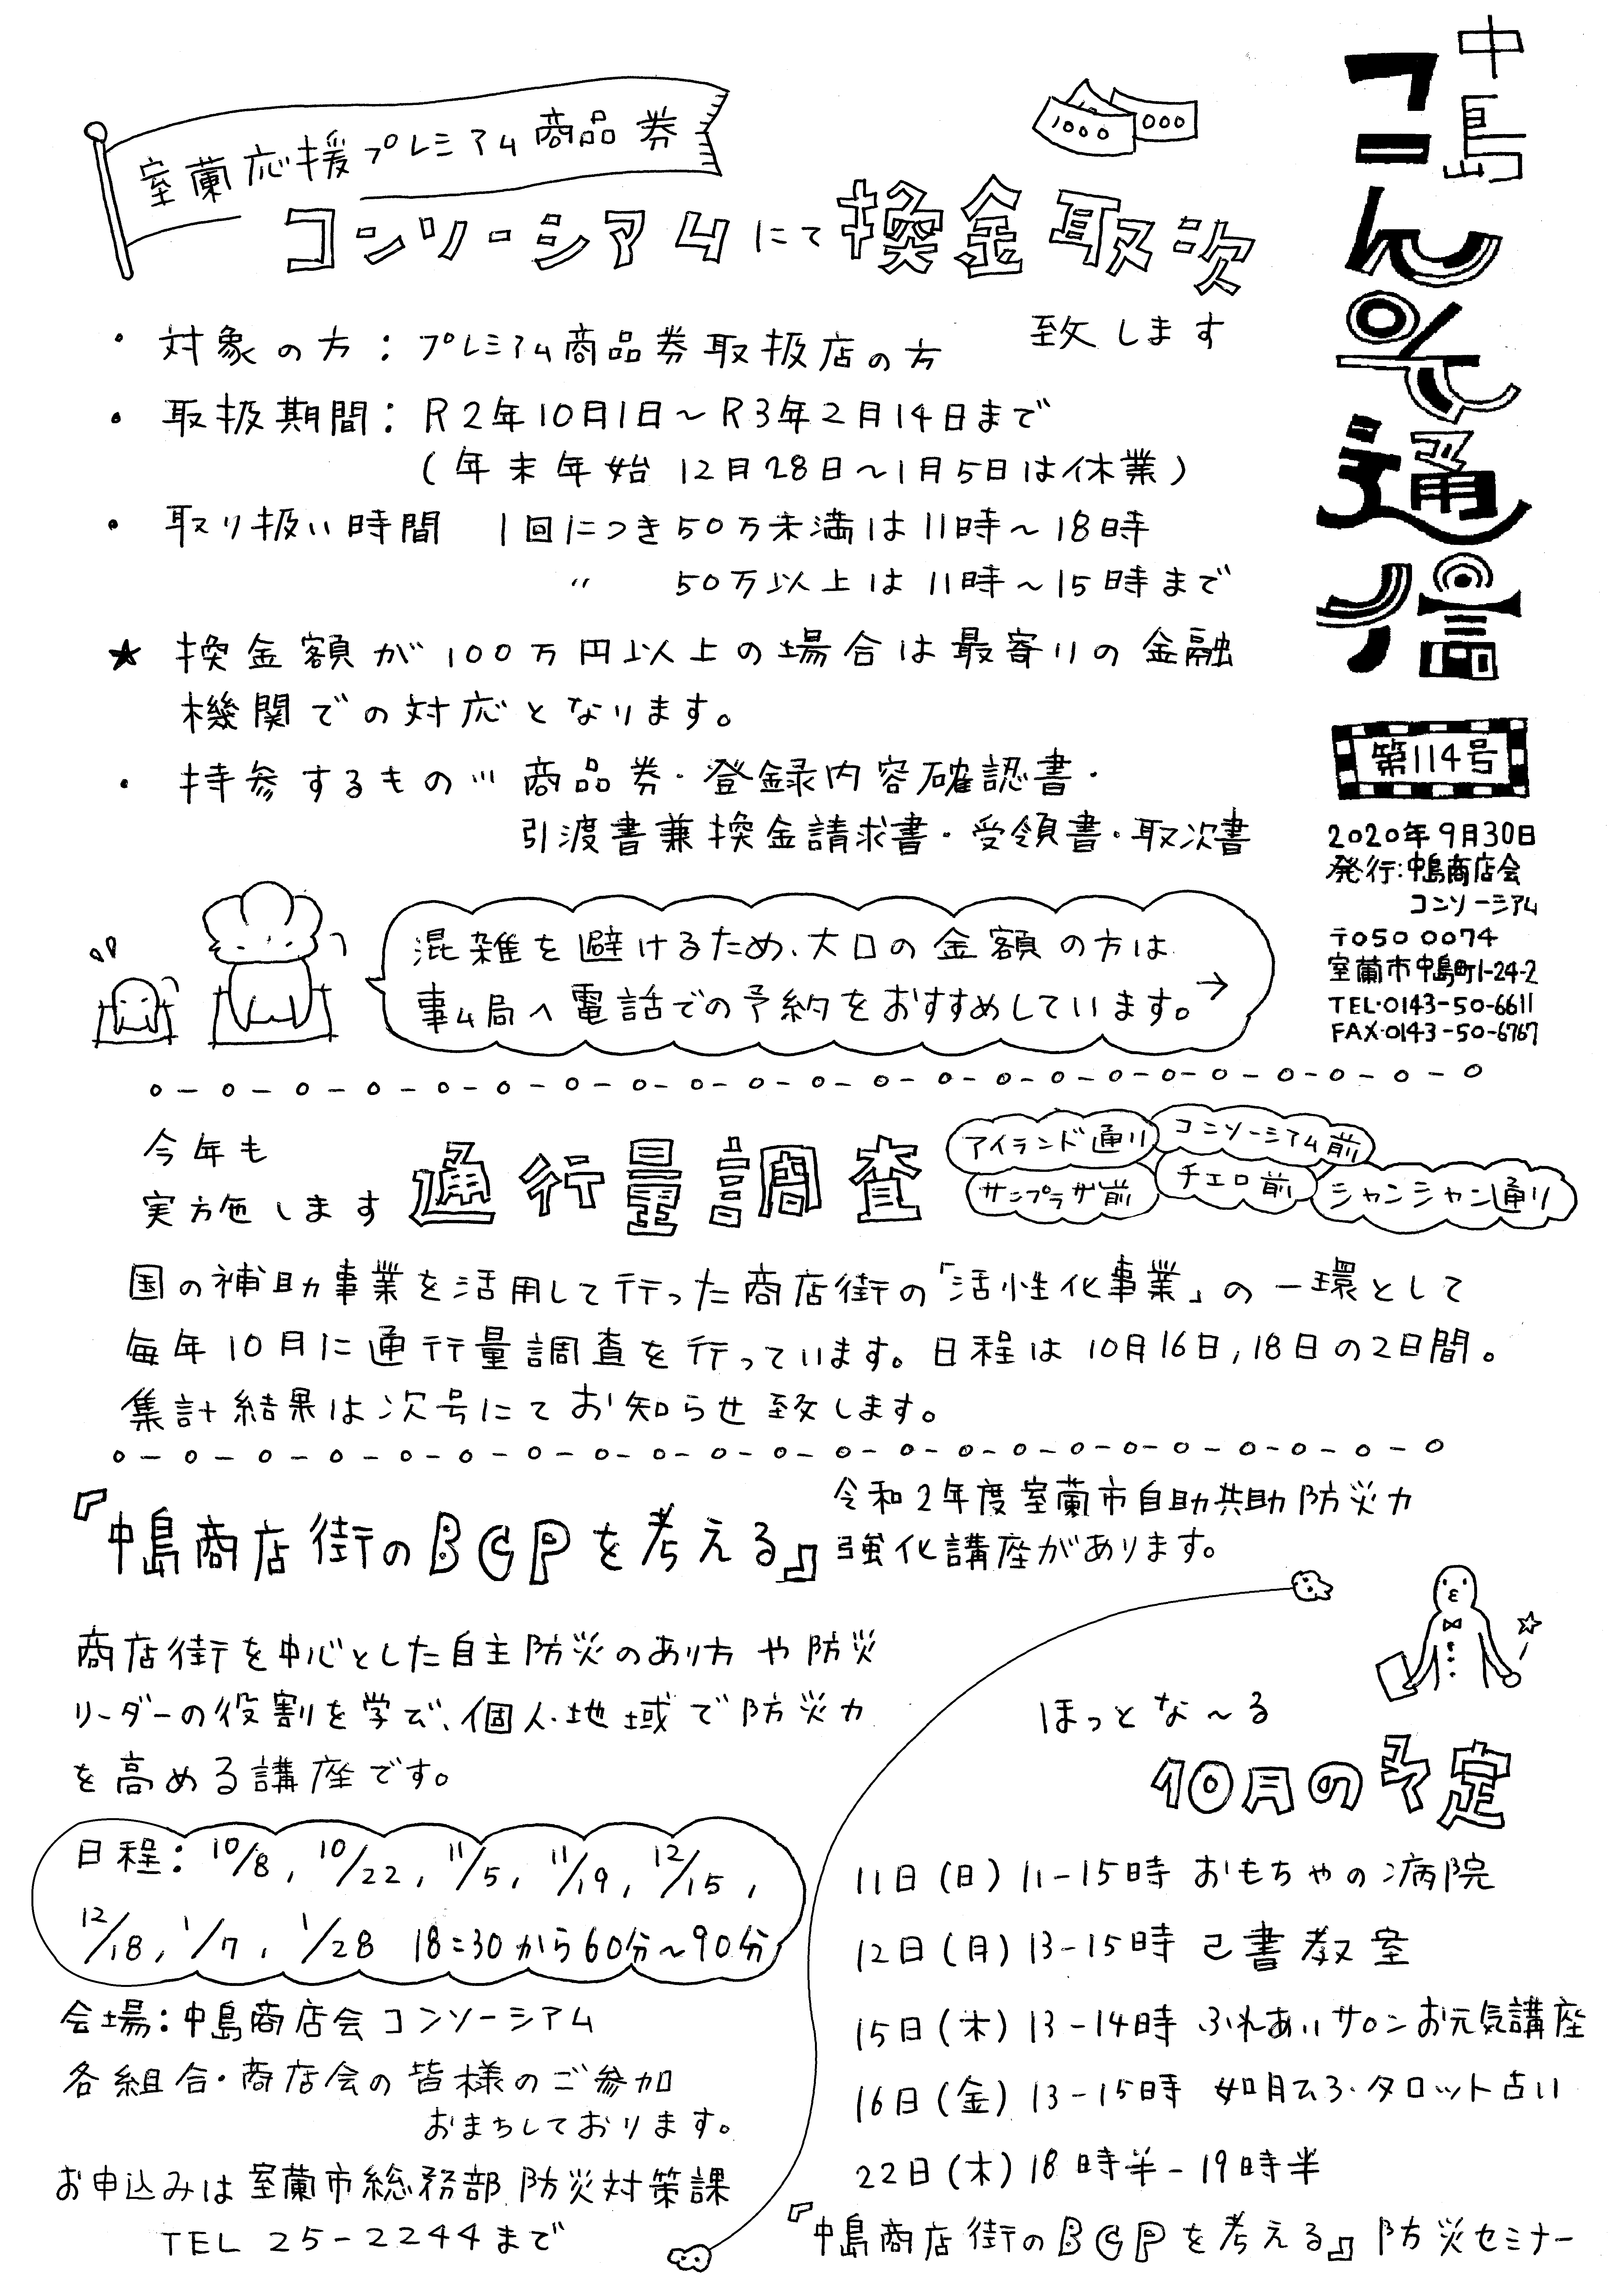 中島
コんそ通信
第114号
2020年9月30日
発行:中島商店会
コンソーシアム
〒050 0074
室蘭市中島町1-24-2
TEL・0143-50-6611
FAX・0143-50-6767
室蘭応援プレミアム商品券
1000
000
コンソーシアムにて換金取次
致します
・対象の方:プレミアム商品券取扱店の方
・取扱期間:R2年10月1日～R3年2月14日まで
(年末年始 12月28日～1月5日は休業)
・取り扱い時間 1回につき50万未満は11時～18時
〃 50万以上は11時～15時まで
★換金額が100万円以上の場合は最寄りの金融
機関での対応となります。
・持参するもの…商品券・登録内容確認書・
引渡書兼換金請求書・受領書・取次書
混雑を避けるため、大口の金額の方は
事ム局へ電話での予約をおすすめしています。→
今年も
実施します
通行量調査
アイランド通り
コンソーシアム前
サンプラザ前
チェロ前
シャンシャン通り
国の補助事業を活用して行った商店街の「活性化事業」の一環として
毎年10月に通行量調査を行っています。日程は10月16日,18日の2日間。
集計結果は次号にてお知らせ致します。
『中島商店街のBCPを考える』
令和2年度室蘭市自助共助防災力
強化講座があります。
商店街を中心とした自主防災のあり方や防災
リーダーの役割を学び、個人・地域で防災力
を高める講座です。
日程:10/8, 10/22, 11/5, 11/19, 12/15,
12/18, 1/7, 1/28 18:30から60分～90分
会場:中島商店会コンソーシアム
各組合・商店会の皆様のご参加
おまちしております。
お申込みは室蘭市総務部防災対策課
TEL 25-2244まで
ほっとな～る
10月の予定
11日(日)11-15時 おもちゃの病院
12日(月)13-15時 己書教室
15日(木)13-14時 ふれあいサロンお元気講座
16日(金)13-15時 如月ひろ・タロット占い
22日(木)18時半-19時半
『中島商店街のBCPを考える』防災セミナー